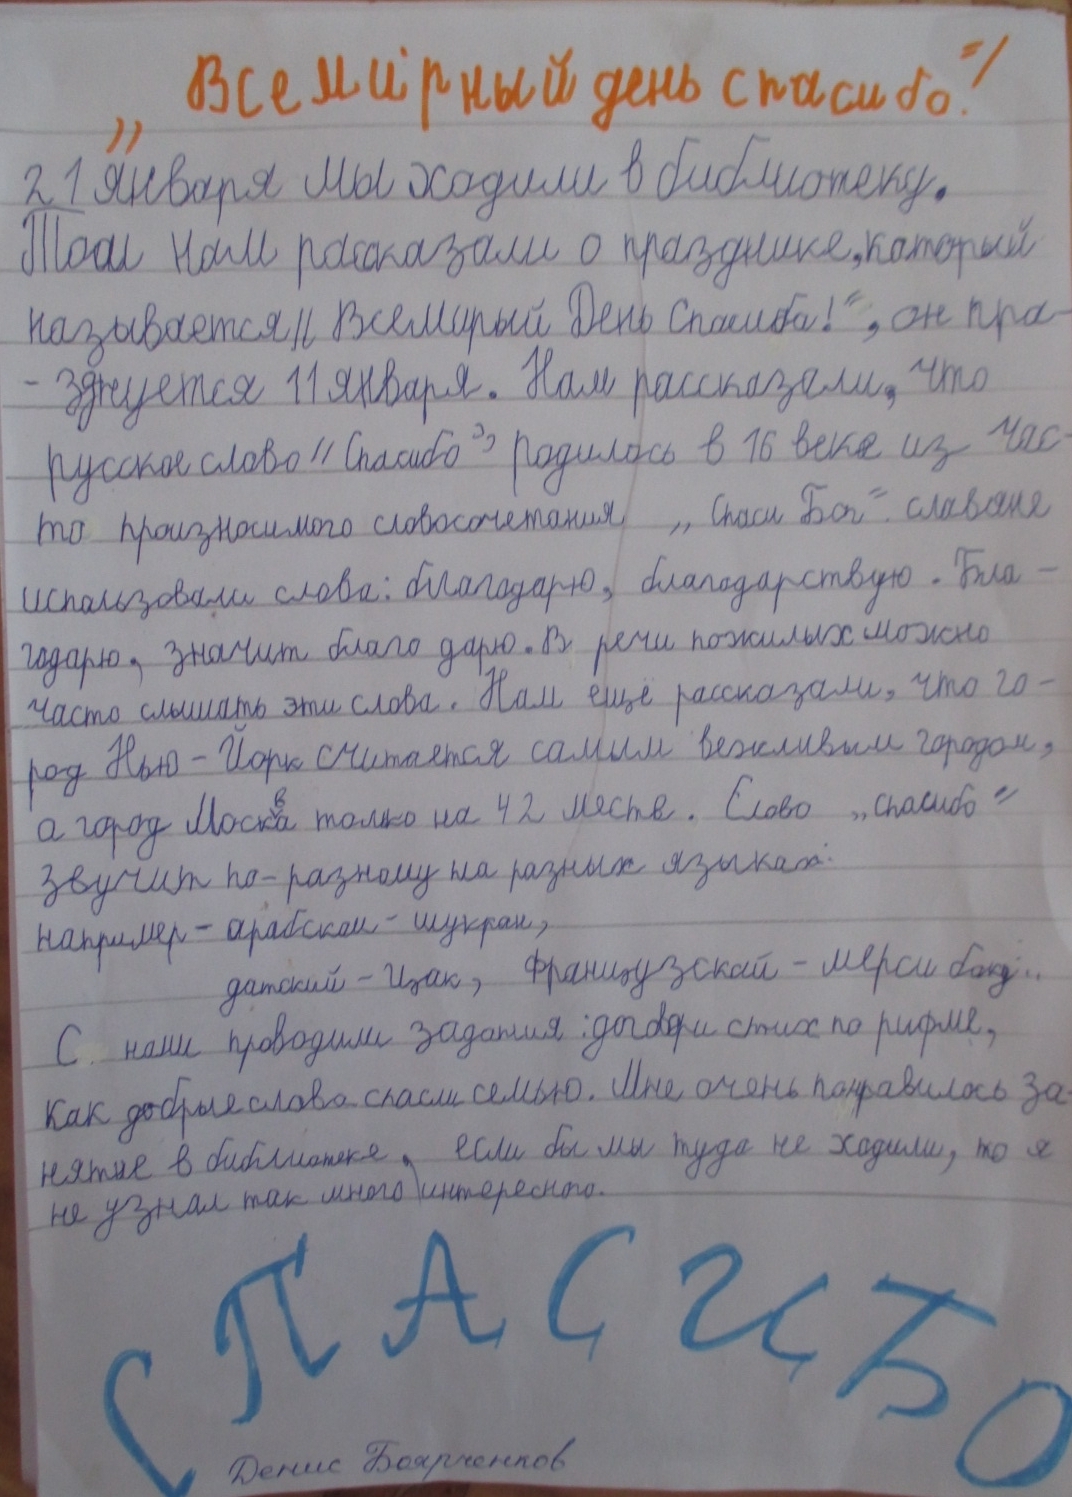 „Всемирный день спасибо!"
21 января мы ходили в библиотеку.
Там нам рассказали о празднике, который
называется „Всемирый День Спасиба!", он пра-
- зднуется 11 января. Нам рассказали, что
русское слово „Спасибо" родилось в 16 веке из час-
то произносимого словосочетания „Спаси Бог". славяне
использовали слова: благодарю, благодарствую. Бла-
годарю, значит благо дарю. В речи пожилых можно
часто слышать эти слова. Нам ещё рассказали, что го-
род Нью-Йорк считается самым вежливым городом,
а город Москва только на 42 месте. Слово „спасибо"
звучит по-разному на разных языках:
например - арабском - шукран,
датский - цак, французский - мерси боку..
С нами проводили задания: договори стих по рифме,
как добрые слова спасли семью. Мне очень понравилось за-
нятие в библиотеке, если бы мы туда не ходили, то я
не узнал так много интересного.
СПАСИБО
Денис Боярченков